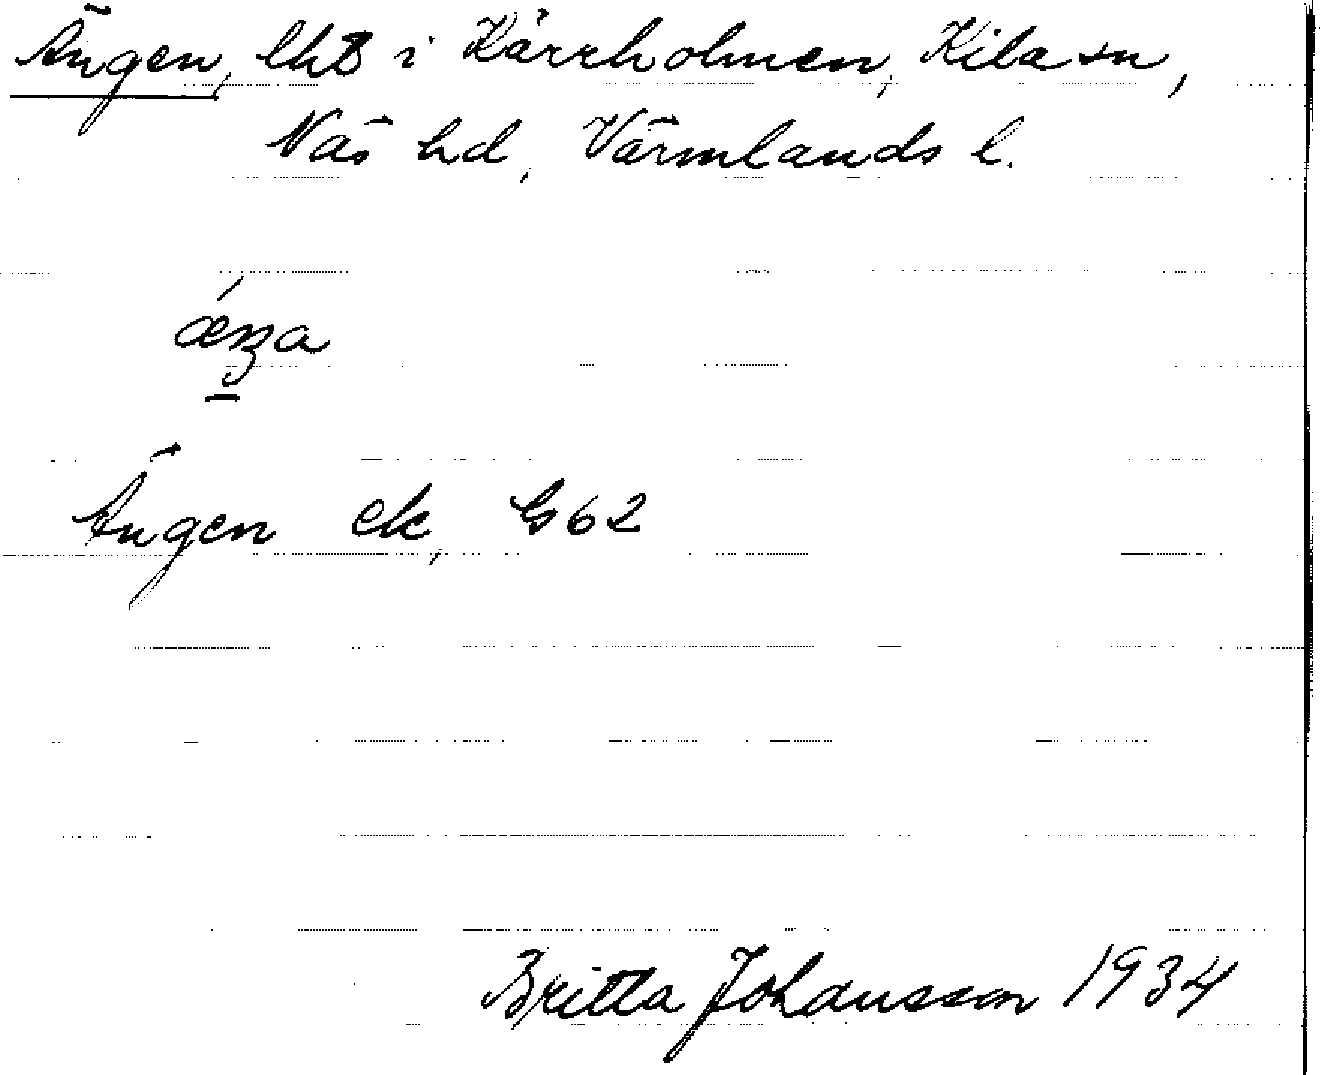 Ängen, lht i Kärrholmen, Kila sn,
Näs hd, Värmlands l.
Ängen ek, G62
Britta Johansson 1934